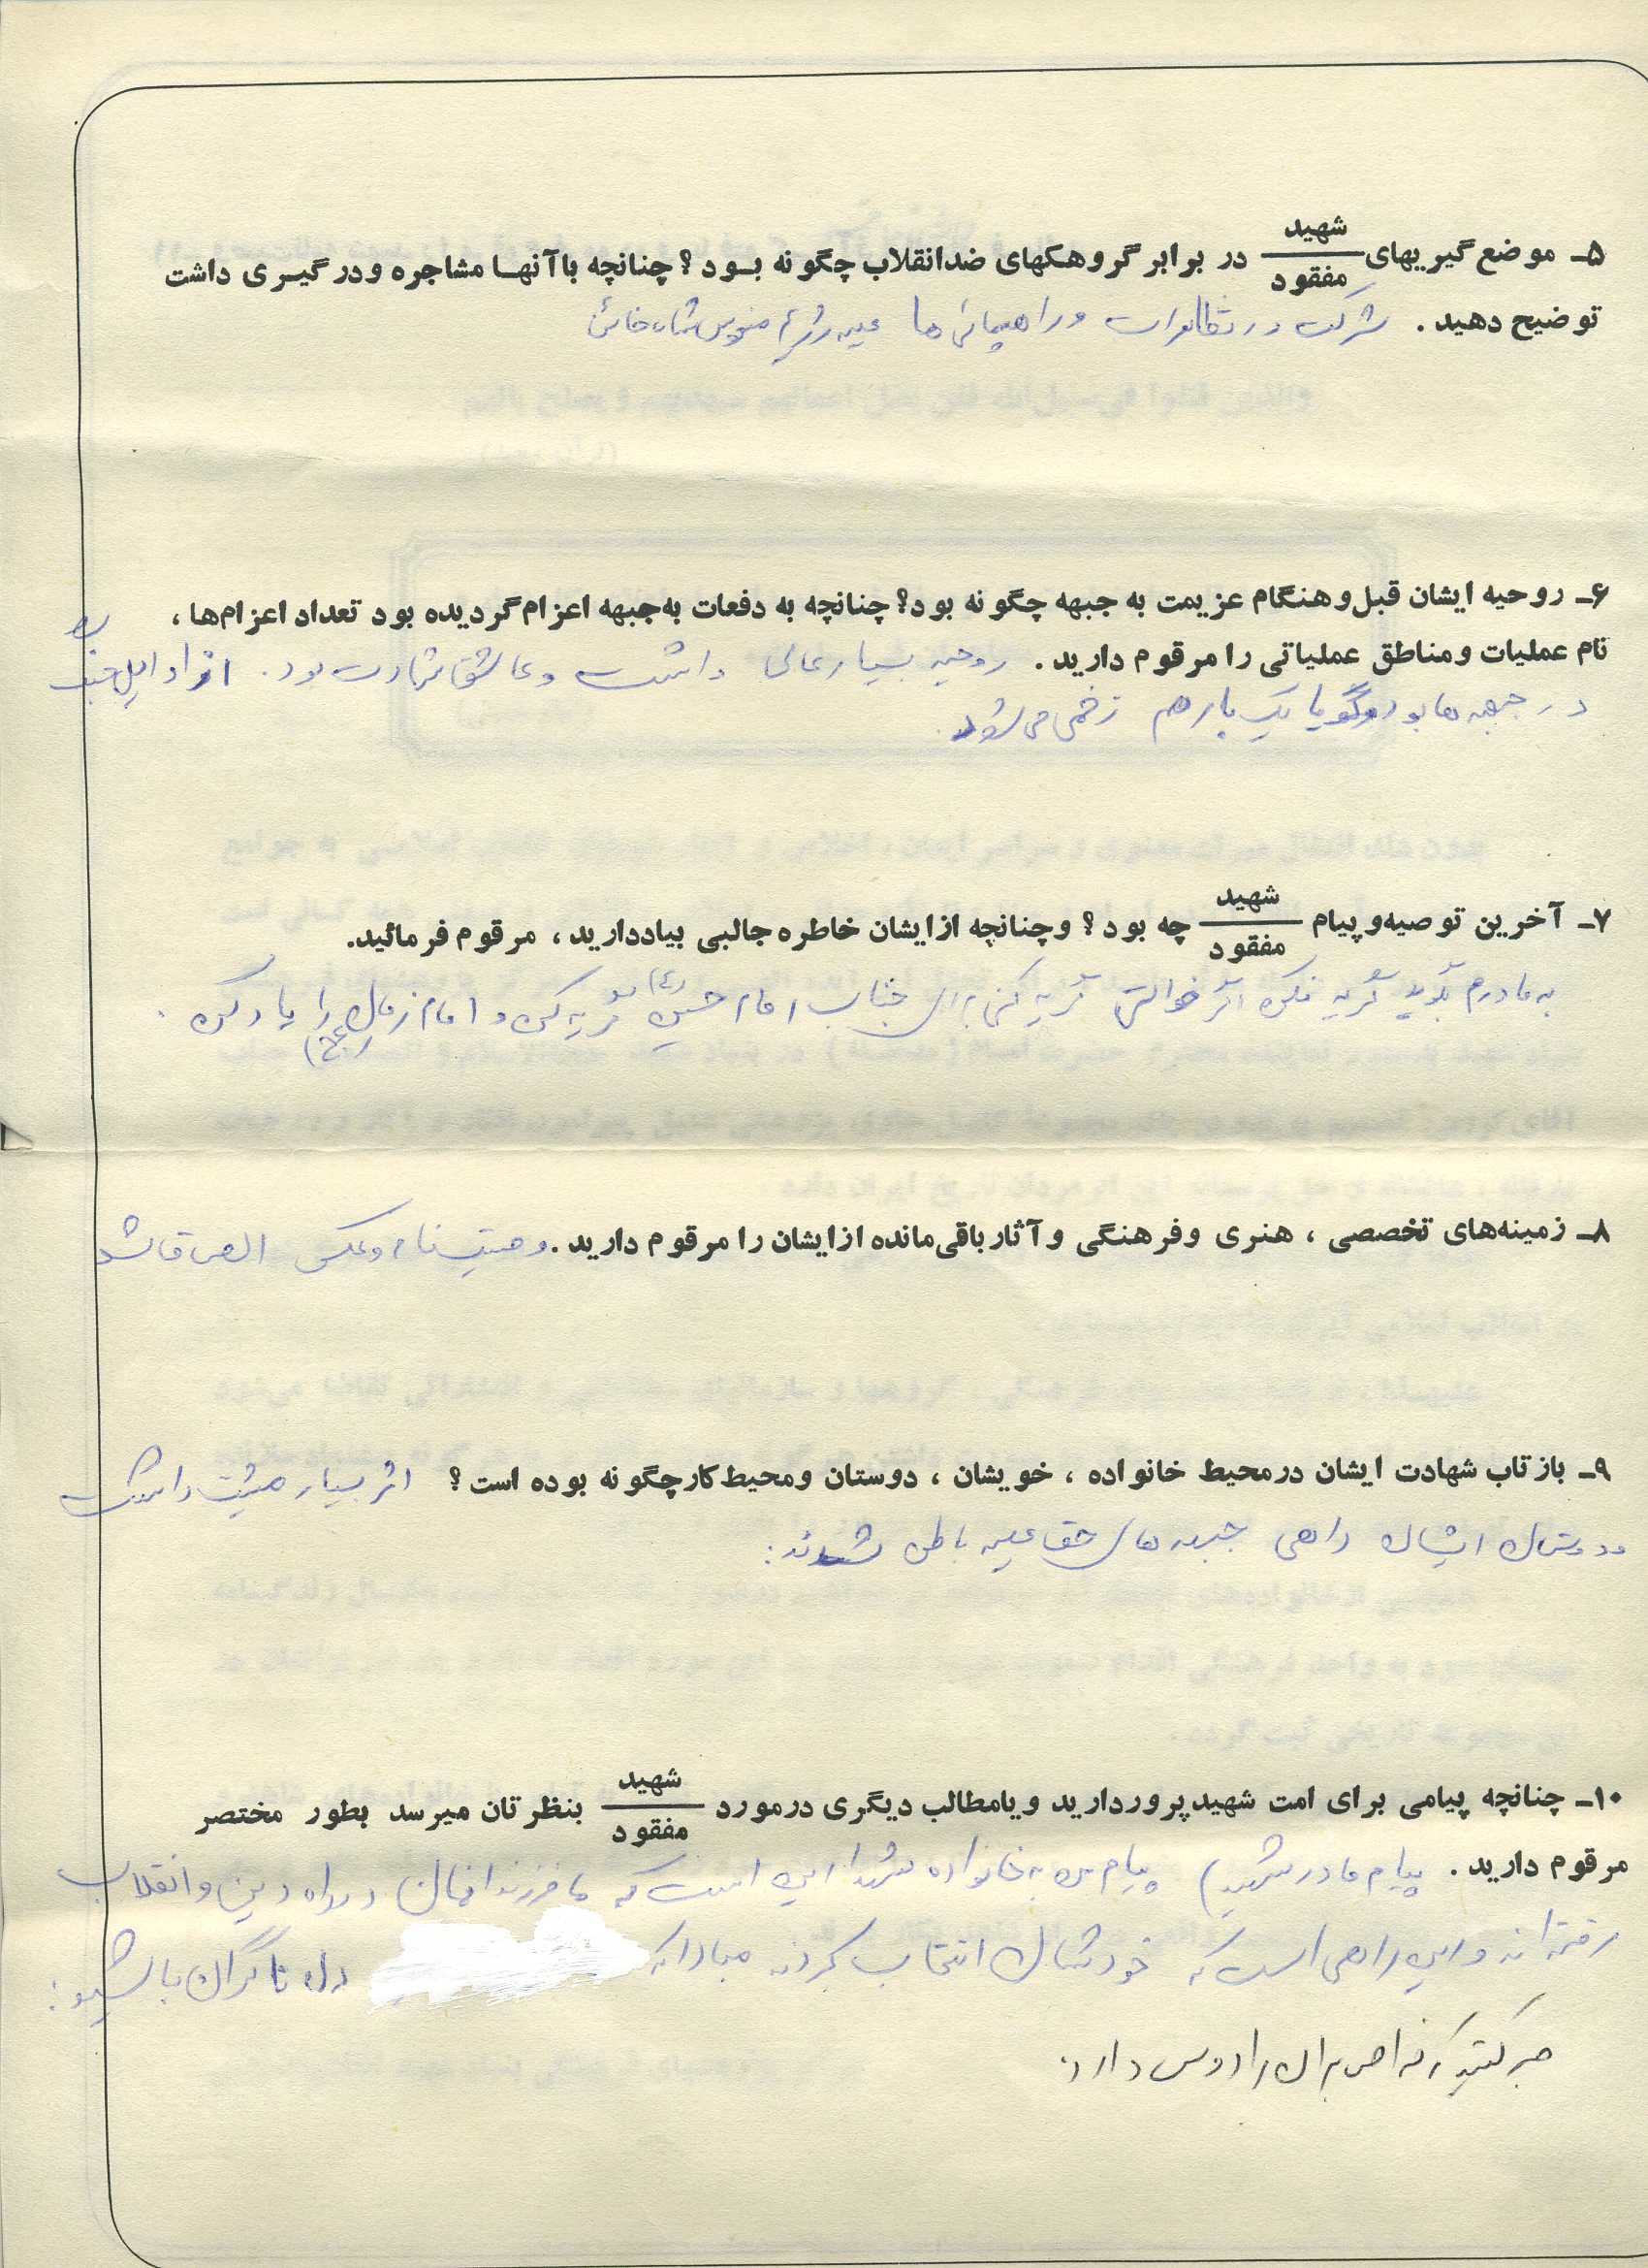 ۵ـ موضع‌گیریهای شهید/مفقود در برابر گروهکهای ضدانقلاب چگونه بود؟ چنانچه باآنها مشاجره ودرگیری داشت
توضیح دهید. شرکت در تظاهرات و راهپیمائی ها علیه رژیم منحوس شاه خائن
۶ـ روحیه ایشان قبل‌وهنگام عزیمت به جبهه چگونه بود؟ چنانچه به دفعات به‌جبهه اعزام‌گردیده بود تعداد اعزام‌ها،
نام عملیات ومناطق عملیاتی را مرقوم دارید. روحیه بسیار عالی داشت و عاشق شهادت بود. از اوایل جنگ
در جبهه ها بود و گویا یک بار هم زخمی می شود.
۷ـ آخرین توصیه‌وپیام شهید/مفقود چه بود؟ وچنانچه ازایشان خاطره جالبی بیاددارید، مرقوم فرمائید.
به مادرم بگویید گریه نکن اگر خواستی گریه کنی برای جناب امام حسین (ع) گریه کن و امام زمان (عج) را یاد کن.
۸ـ زمینه‌های تخصصی، هنری وفرهنگی وآثارباقی‌مانده ازایشان را مرقوم دارید. وصیت نامه و عکس
۹ـ بازتاب شهادت ایشان درمحیط خانواده، خویشان، دوستان ومحیط‌کارچگونه بوده است؟ اثر بسیار مثبت داشت
ودوستان ایشان راهی جبهه های حق علیه باطل شدند:
۱۰ـ چنانچه پیامی برای امت شهیدپروردارید ویامطالب دیگری درمورد شهید/مفقود بنظرتان میرسد بطور مختصر
مرقوم دارید. پیام مادر شهید) پیام من به خانواده شهدا این است که ما فرزندانمان در راه دین و انقلاب
رفته اند و این راهی است که خودشان انتخاب کردند مبادا که دل نگران باشید:
صبر کنید که خدا صابران را دوست دارد.